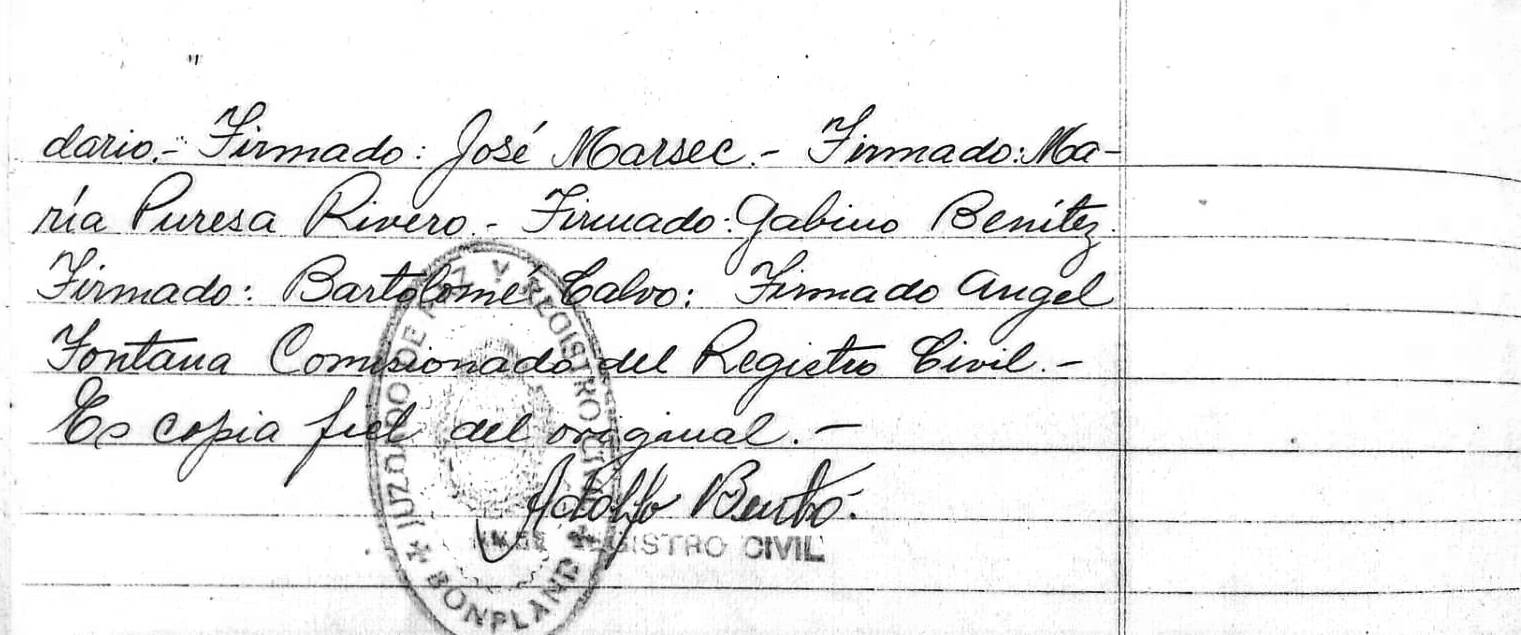 dario.- Firmado: José Marsec.- Firmado: Ma-
ría Puresa Rivero.- Firmado: Gabino Benítez.
Firmado: Bartolomé Calvo: Firmado Angel
Fontana Comisionado del Registro Civil.-
Es copia fiel del original.-
Adolfo
REGISTRO CIVIL
JUZGADO DE PAZ Y REGISTRO CIVIL
BONPLAND